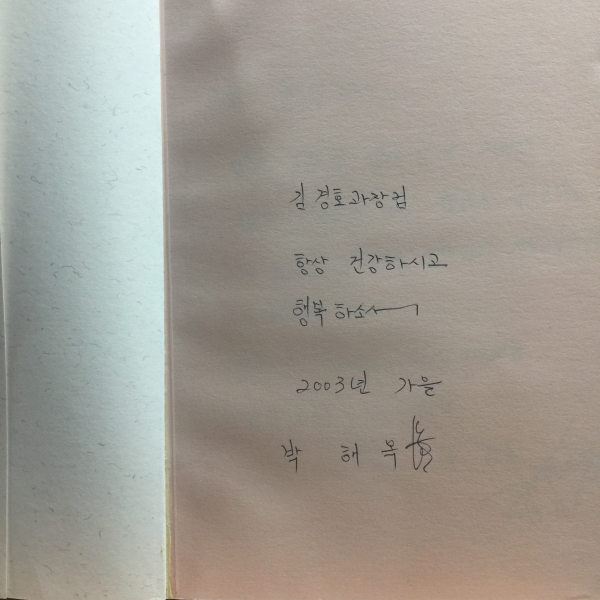 김경호과장님
항상 건강하시고
행복하소서
2003년 가을
박 해 옥